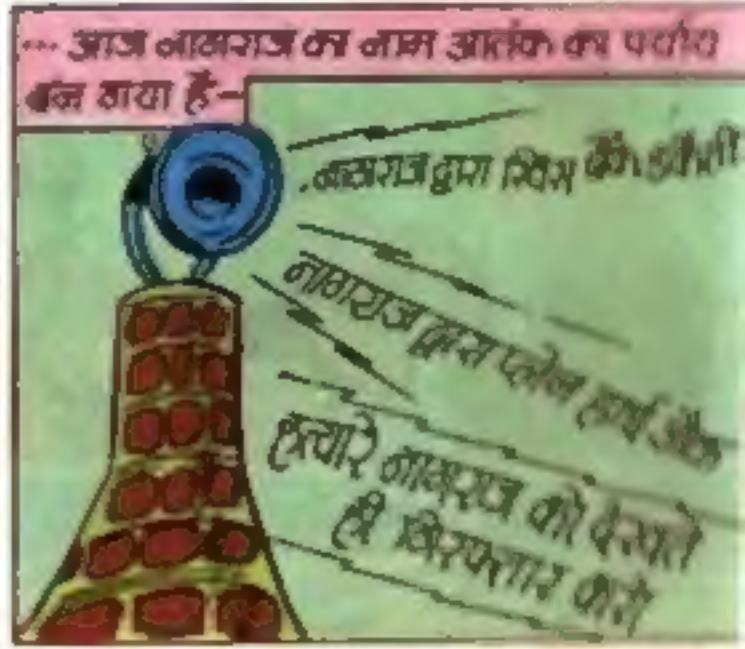 ... आज नागराज का नाम आतंक का पर्याय
बन गया है-
नागराज द्वारा स्विस बैंक डकैती
नागराज द्वारा प्लेन हाई जैक
हत्यारे नागराज को देखते
ही गिरफ्तार करो